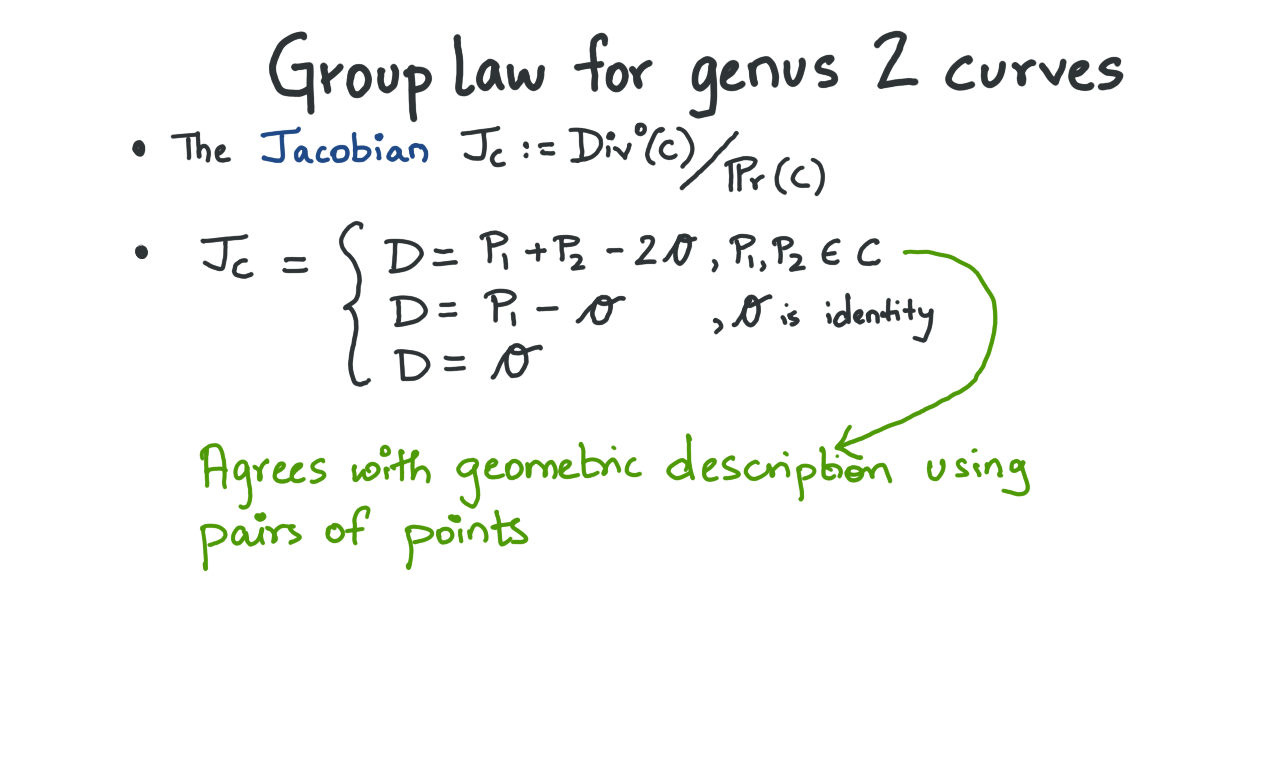 Group law for genus 2 curves
• The Jacobian J_C := Div⁰(C)/Pr(C)
• J_C = { D = P₁ + P₂ - 2𝒪, P₁, P₂ ∈ C
D = P₁ - 𝒪 , 𝒪 is identity
D = 𝒪
Agrees with geometric description using
pairs of points